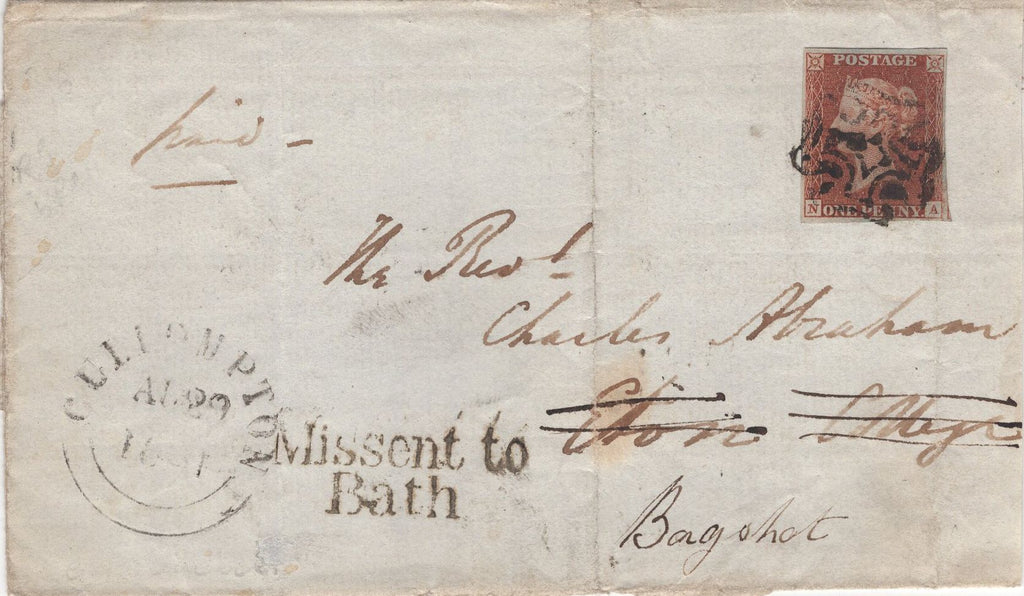 POSTAGE
paid -
N ONE PENNY A
The Revd
Charles Abraham
Eton College
CULLOMPTON
Missent to
Bath
Bagshot